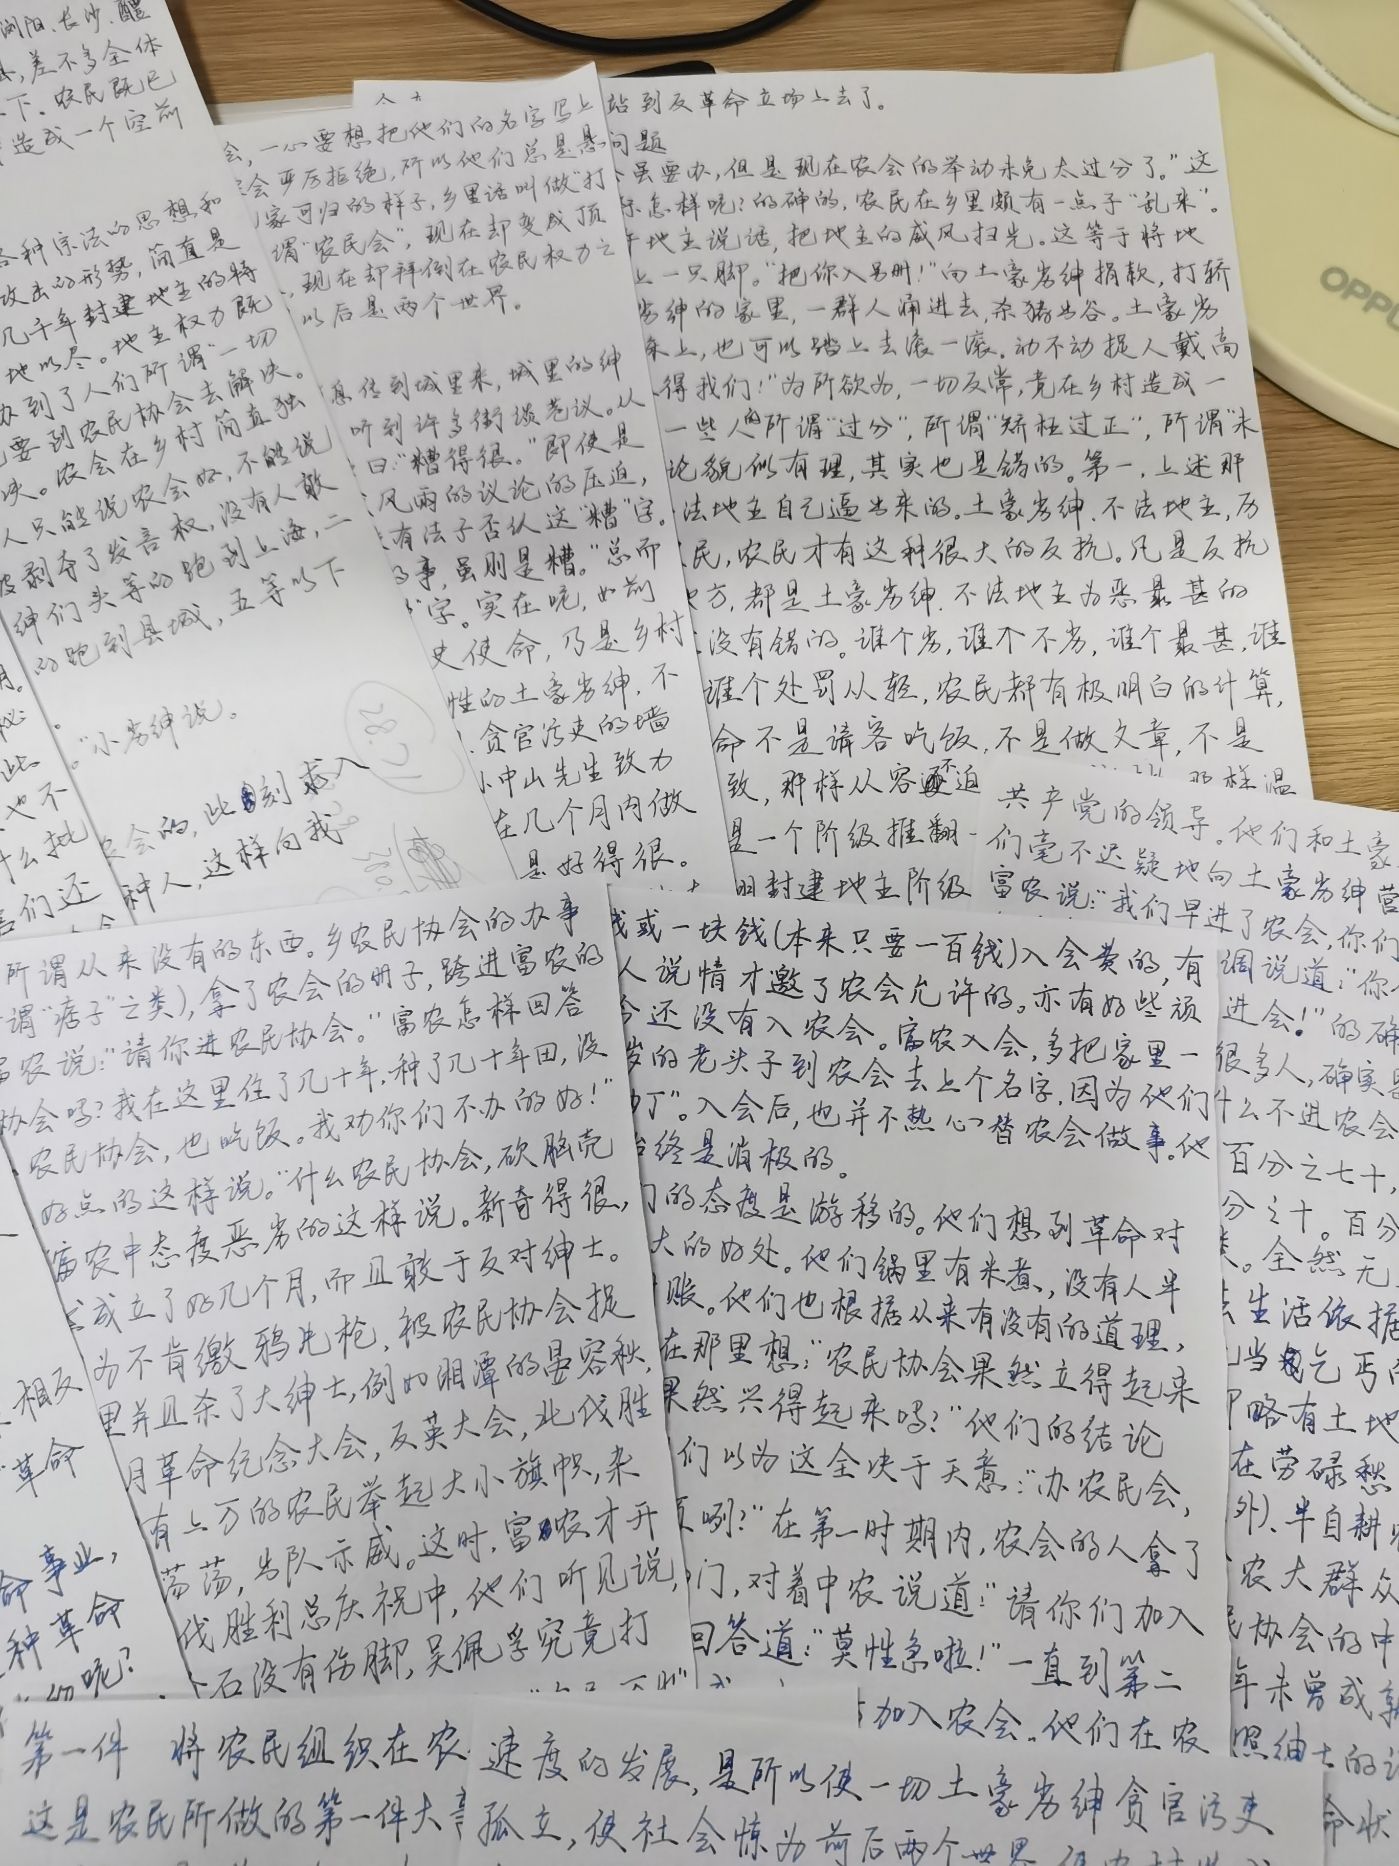 浏阳、长沙、醴
差不多全体
下。农民既已
造成一个空前
各种宗法的思想和
攻击的形势，简直是
几千年封建地主的特
地以尽。地主权力既
办到了人们所谓"一切
要到农民协会去解决。
农会在乡村简直独
人只能说农会好，不能说
被剥夺了发言权，没有人敢
绅们头等的跑到上海，二
的跑到县城，五等以下
"小劣绅说。
农会的，此刻求入
种人，这样向我
会，一心要想把他们的名字写上
农会严厉拒绝，所以他们总是悬
家可归的样子，乡里话叫做"打
谓"农民会"，现在却变成顶
现在却拜倒在农民权力之
以后是两个世界。
息传到城里来，城里的绅
听到许多街谈巷议。从
曰："糟得很。"即使是
风雨的议论的压迫，
有法子否认这"糟"字。
事，虽则是糟。"总而
字。实在呢，如前
史使命，乃是乡村
性的土豪劣绅，不
贪官污吏的墙
中山先生致力
在几个月内做
是好得很。
站到反革命立场上去了。
问题
虽要办，但是现在农会的举动未免太过分了。"这
怎样呢？的确的，农民在乡里颇有一点子"乱来"。
地主说话，把地主的威风扫光。这等于将地
上一只脚。"把你入另册！"向土豪劣绅捐款，打轿
劣绅的家里，一群人涌进去，杀猪出谷。土豪劣
床上，也可以踏上去滚一滚。动不动捉人戴高
得我们！"为所欲为，一切反常，竟在乡村造成一
一些人的所谓"过分"，所谓"矫枉过正"，所谓"未
论貌似有理，其实也是错的。第一，上述那
法地主自己逼出来的。土豪劣绅、不法地主，历
民，农民才有这种很大的反抗。凡是反抗
方，都是土豪劣绅、不法地主为恶最甚的
没有错的。谁个劣，谁个不劣，谁个最甚，谁
谁个处罚从轻，农民都有极明白的计算，
命不是请客吃饭，不是做文章，不是
致，那样从容不迫
那样温
是一个阶级推翻一
封建地主阶级
共产党的领导。他们和土豪
们毫不迟疑地向土豪劣绅营
富农说："我们早进了农会，你们
调说道："你
进会！"的确
很多人，确实
什么不进农会
百分之七十，
分之十。百分
全然无
去生活依据
当乞丐
略有土地
在劳碌愁
外）、半自耕
农大群众
民协会的中
年未曾成
照绅士的
命状
所谓从来没有的东西。乡农民协会的办事
谓"痞子"之类），拿了农会的册子，跨进富农的
富农说："请你进农民协会。"富农怎样回答
协会吗？我在这里住了几十年，种了几十年田，没
农民协会，也吃饭。我劝你们不办的好！"
好点的这样说。"什么农民协会，砍脑壳
富农中态度恶劣的这样说。新奇得很，
成立了好几个月，而且敢于反对绅士。
为不肯缴鸦片枪，被农民协会捉
里并且杀了大绅士，例如湘潭的晏容秋，
月革命纪念大会，反英大会，北伐胜
有上万的农民举起大小旗帜，杂
荡荡，出队示威。这时，富农才开
伐胜利总庆祝中，他们听见说，
石没有伤脚，吴佩孚究竟打
或一块钱（本来只要一百钱）入会费的，有
人说情才邀了农会允许的。亦有好些顽
还没有入农会。富农入会，多把家里一
岁的老头子到农会去上个名字，因为他们
丁"。入会后，也并不热心替农会做事。他
始终是消极的。
们的态度是游移的。他们想到革命对
大的好处。他们锅里有米煮，没有人半
账。他们也根据从来有没有的道理，
在那里想："农民协会果然立得起来
果然兴得起来吗？"他们的结论
们以为这全决于天意："办农民会，
咧？"在第一时期内，农会的人拿了
门，对着中农说道："请你们加入
回答道："莫性急啦！"一直到第二
加入农会。他们在农
相反
革命
命事业，
种革命
呢？
第一件 将农民组织在农
这是农民所做的第一件大
速度的发展，是所以使一切土豪劣绅贪官污吏
孤立，使社会惊为前后两个世界
OPP